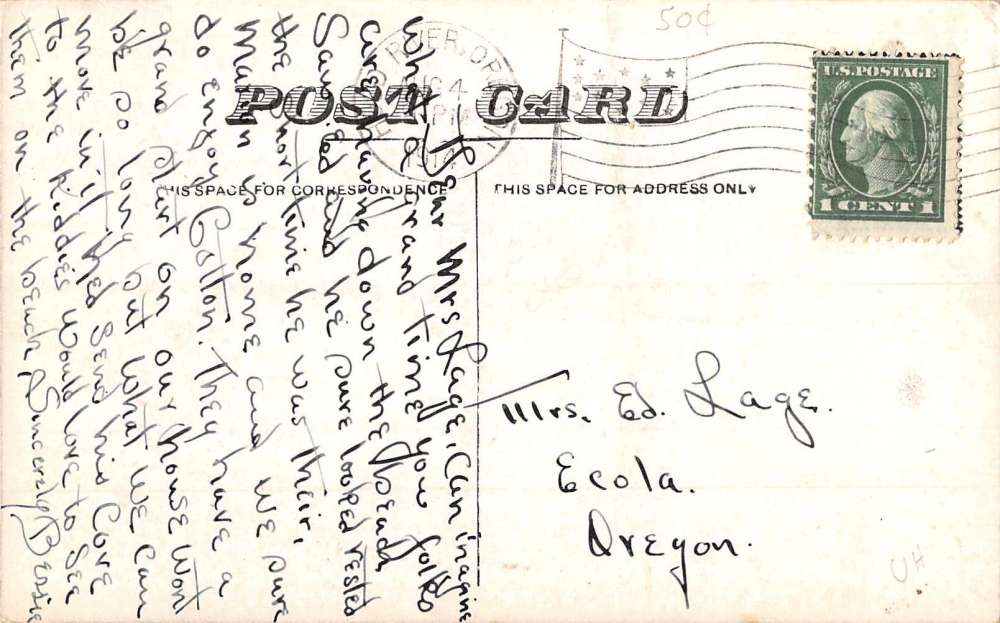 50¢
POST CARD
U.S. POSTAGE
1 CENT 1
RIVER, ORE
4
THIS SPACE FOR CORRESPONDENCE
THIS SPACE FOR ADDRESS ONLY
Dear Mrs Lage, Can imagine
What a grand time you folks
are having down the beach
Saw Ed and he sure looked rested
the short time he was their,
Mann is home and we sure
do enjoy Colton. They have a
grand start on our house wont
be so long but what we can
move in. I'll hed send his love
to the kiddies would love to see
them on the beach Sincerely Bessie
Mrs. Ed. Lage.
Ecola.
Oregon.